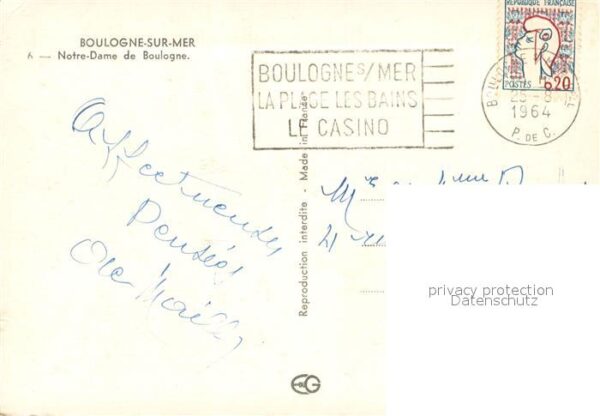 BOULOGNE-SUR-MER
6 — Notre-Dame de Boulogne.
REPUBLIQUE FRANÇAISE
POSTES 0,20
BOULOGNE S/MER
LA PLAGE LES BAINS
LE CASINO
1964
P. DE C.
Affectueuses
Pensées
Reproduction interdite - Made in France
21
privacy protection
Datenschutz
EG